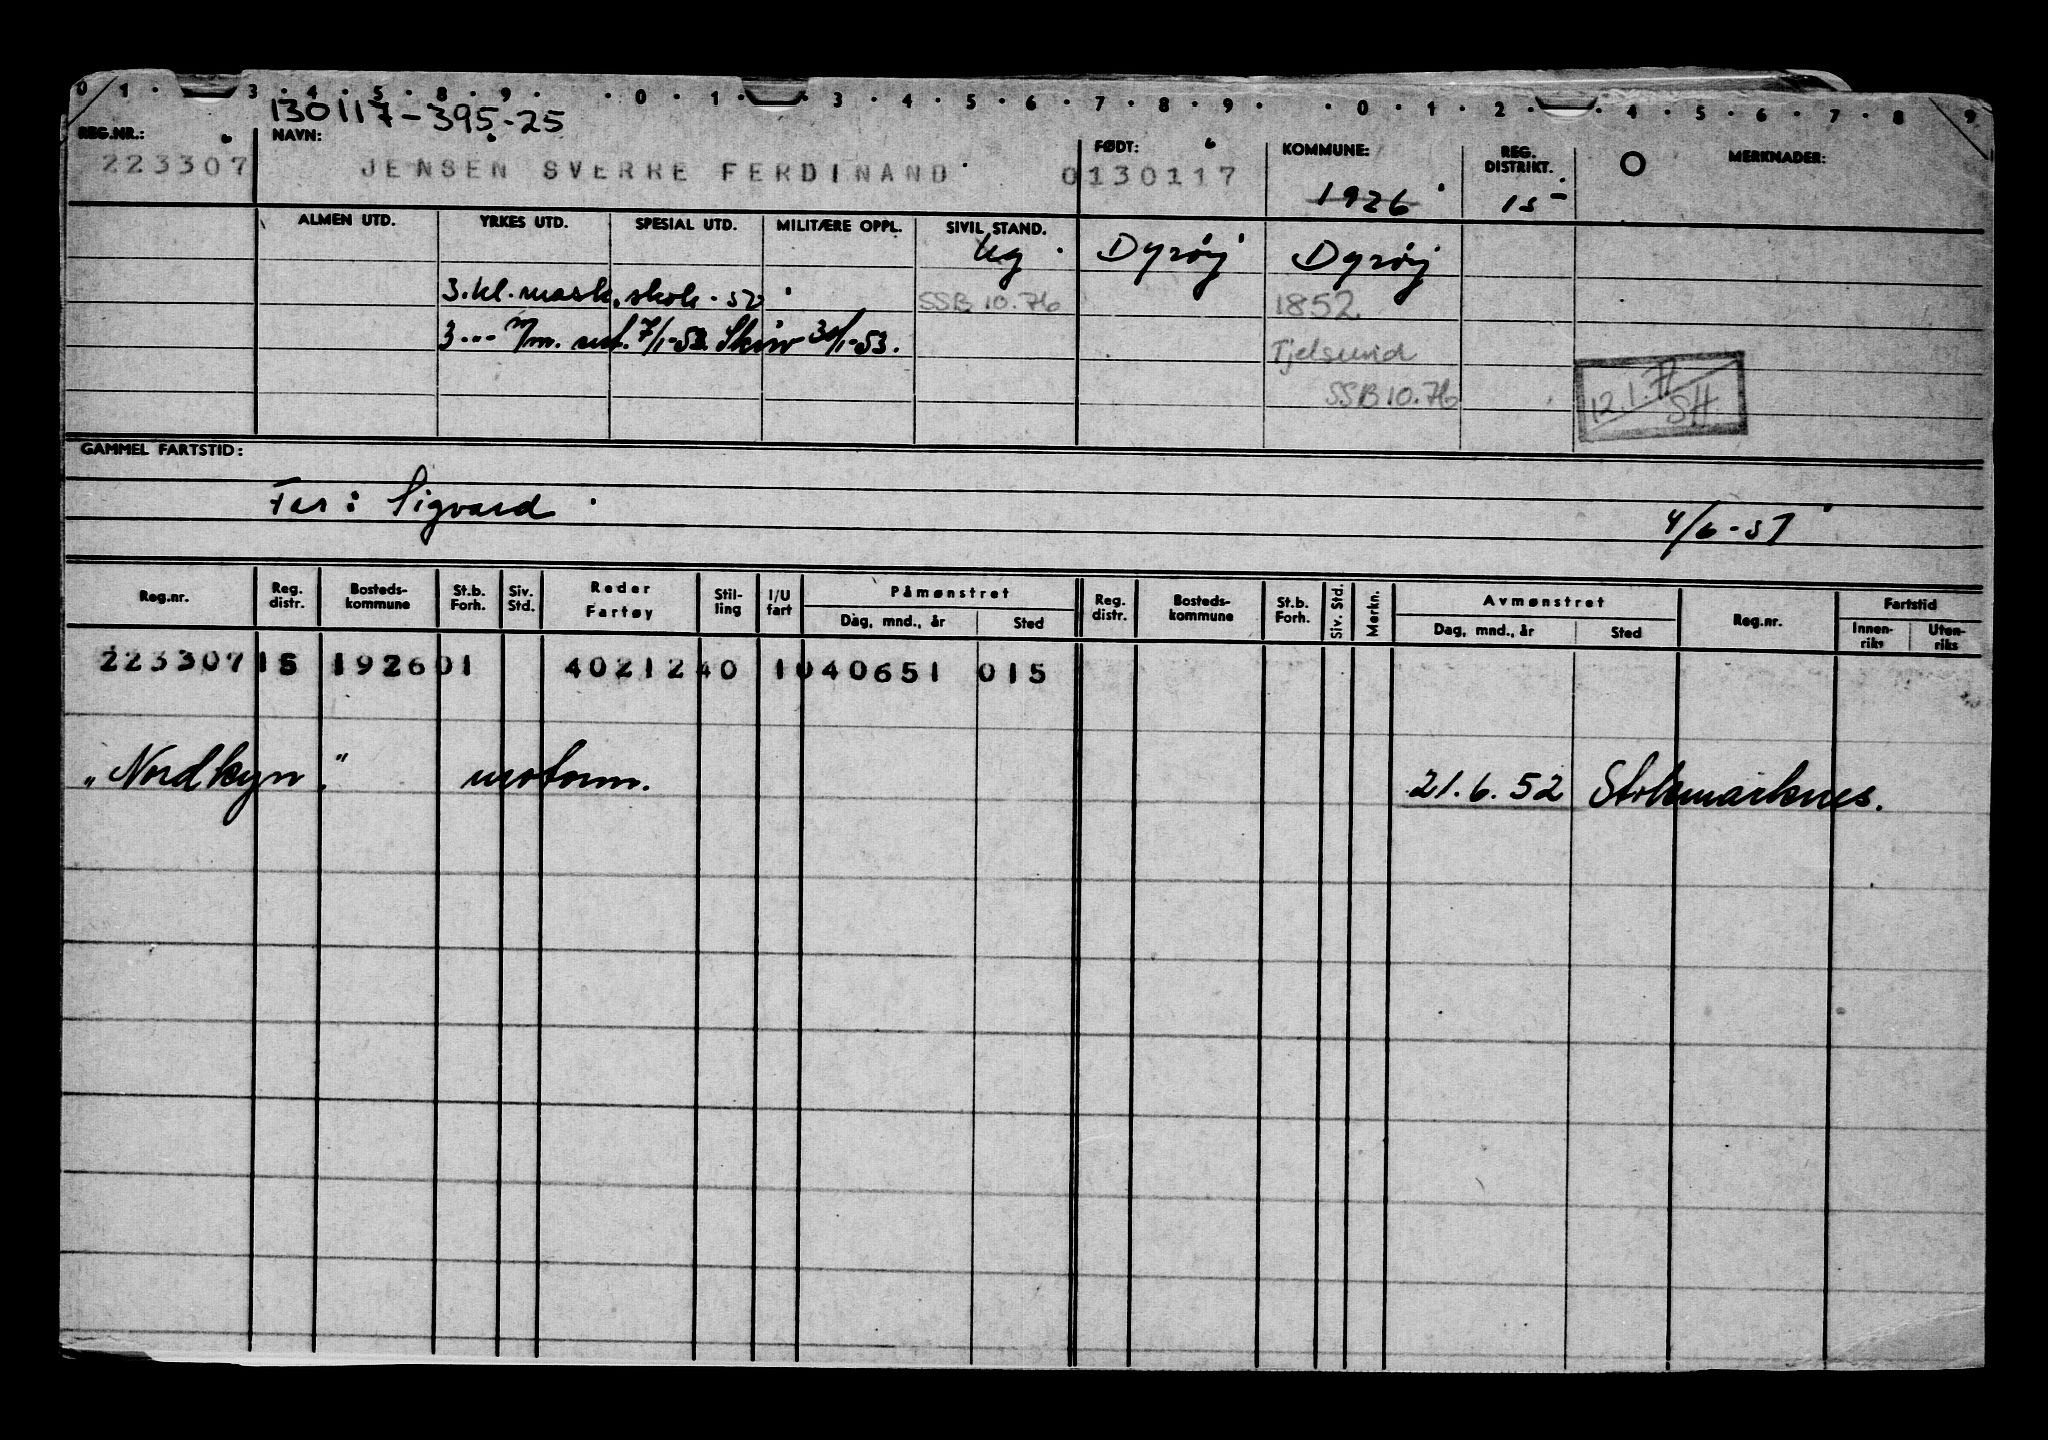 0 1 · 3 · 4 · 5 · 8 · 9 · · 0 · 1 · 3 · 4 · 5 · 6 · 7 · 8 · 9 · · 0 · 1 · 2 · 4 · 5 · 6 · 7 · 8 9
130117-395-25
REG.NR.: NAVN: FØDT: KOMMUNE: REG. DISTRIKT. MERKNADER:
223307 JENSEN SVERRE FERDINAND 0130117 1926 15
ALMEN UTD. YRKES UTD. SPESIAL UTD. MILITÆRE OPPL. SIVIL STAND.
Ug Dyrøy Dyrøy
3.kl. mask. skole - 52 SSB 10.76 1852
3 --- 7/1-53 30/1-53. Tjelsund
SSB 10.76 12.1.77 SH
GAMMEL FARTSTID:
Far: Sigvard 4/6-51
Reg.nr. Reg. distr. Bosteds-kommune St.b. Forh. Siv. Std. Reder Fartøy Stil-ling I/U fart Påmønstret Dag, mnd., år Sted Reg. distr. Bosteds-kommune St.b. Forh. Siv. Std. Merkn. Avmønstret Dag, mnd., år Sted Reg.nr. Fartstid Innen-riks Uten-riks
223307 15 1926 01 40212 40 1 040651 015
"Nordkyn." motorm. 21.6.52 Stokmarknes.